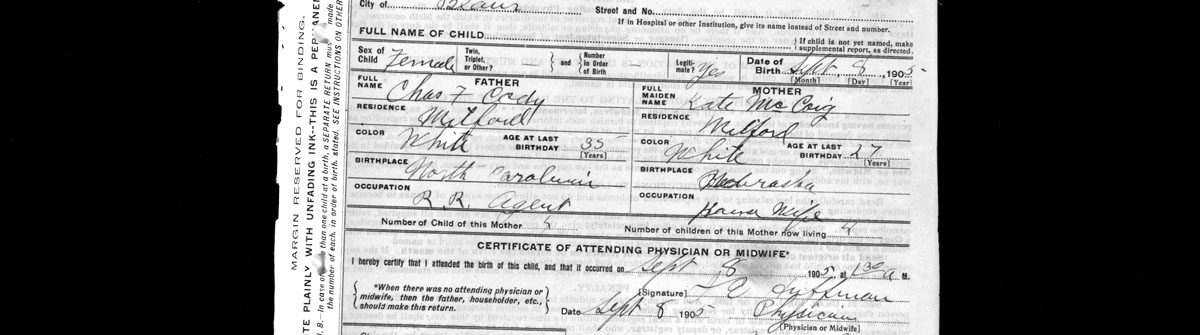 City of
Street and No.
If in Hospital or other Institution, give its name instead of Street and number.
FULL NAME OF CHILD
If child is not yet named, make supplemental report, as directed.
Sex of Child Female Twin, Triplet, or Other? and Number in Order of Birth — Legiti-mate? Yes Date of Birth Sept 8, 1905
[Month] [Day] [Year]
FATHER
FULL NAME Chas F Cody
RESIDENCE Milford
COLOR White AGE AT LAST BIRTHDAY 35
[Years]
BIRTHPLACE North Carolina
OCCUPATION R.R. Agent
MOTHER
FULL MAIDEN NAME Kate McCoig
RESIDENCE Milford
COLOR White AGE AT LAST BIRTHDAY 27
[Years]
BIRTHPLACE Nebraska
OCCUPATION House Wife
Number of Child of this Mother 4 Number of children of this Mother now living 4
CERTIFICATE OF ATTENDING PHYSICIAN OR MIDWIFE*
I hereby certify that I attended the birth of this child, and that it occurred on Sept 8 1905, at 1 30 a M.
*When there was no attending physician or
midwife, then the father, householder, etc.,
should make this return.
[Signature] Huffman
Date Sept 8 1905 Physician
[Physician or Midwife]
MARGIN RESERVED FOR BINDING.
TE PLAINLY WITH UNFADING INK--THIS IS A PERMANEN
B.—In case of more than one child at a birth, a SEPARATE RETURN must be made
the number of each, in order of birth, stated. SEE INSTRUCTIONS ON OTHER